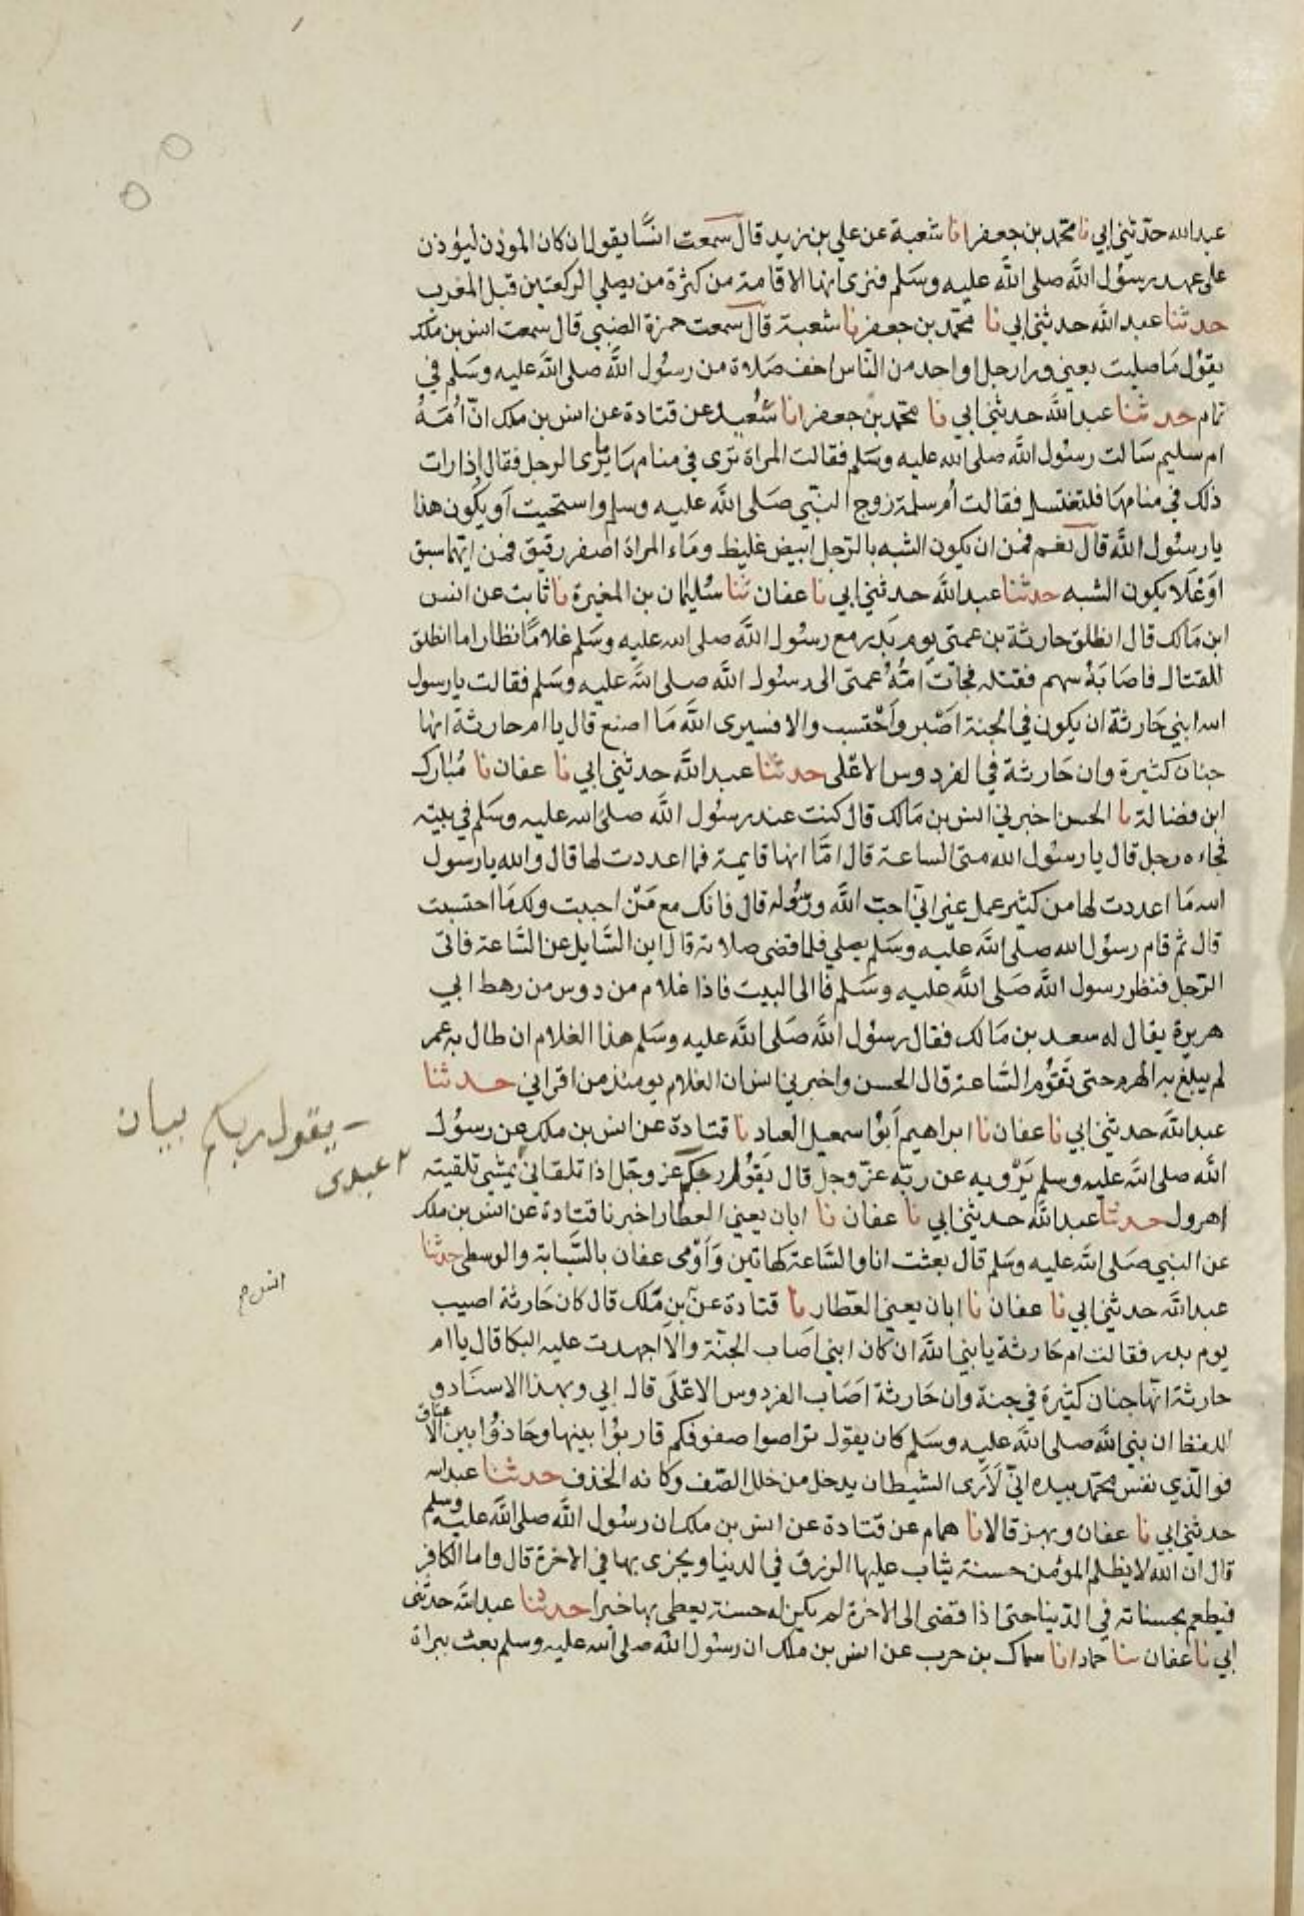 عبدالله حدثني ابي نا محمد بن جعفر انا شعبة عن علي بن زيد قال سمعت انسًا يقول ان كان الموذن ليؤذن
على عهد رسول الله صلى الله عليه وسلم فنرى انها الاقامة من كثرة من يصلي الركعتين قبل المغرب
حدثنا عبد الله حدثني ابي نا محمد بن جعفر نا شعبة قال سمعت حمزة الضبي قال سمعت انس بن ملك
يقول مَا صليت يعني ورا رجل واحد من الناس اخف صَلاة من رسول الله صلى الله عليه وسَلم في
تمام حدثنا عبد الله حدثني ابي نا محمد بن جعفر انا سُعيد عن قتادة عن انس بن ملك انّ اُمَهُ
ام سليم سَالت رسول الله صلى الله عليه وسَلم فقالت المراة ترى في منامهَا مَا يرى الرجل فقال اذا رات
ذلك في منامهَا فلتغتسل فقالت اُم سلمة زوج النبي صَلى الله عليه وسلم واستحيت اَو يكون هذا
يا رسول الله قال نعم فمن ان يكون الشبه بالرّجل ابيض غليظ ومَاء المراة اصفر رقيق فمن ايهما سبق
اوْ عَلَا يكون الشبه حدثنا عبد الله حدثني ابي نا عفان ثنا سُليمان بن المغيرة نا ثابت عن انس
ابن مَالك قال انطلق حارثة بن عمتي يوم بَدر مع رسول الله صلى الله عليه وسَلم غلامًا نظارا ما انطلق
للقتال فاصَابَهُ سهم فقتله فجاءت امُّهُ عمتي الى رسول الله صلى الله عليه وسَلم فقالت يا رسول
الله ابني حَارثة ان يكون في الجنة اصْبر واَحْتسب والا فسيرى الله مَا اصنع قال يا ام حارثة انها
جنان كثيرة وان حَارثة في الفردوس الاعلى حدثنا عبد الله حدثني ابي نا عفان نا مُبارك
ابن فضالة نا الحسن اخبرني انس بن مَالك قال كنت عند رسول الله صلى الله عليه وسَلم في بيته
فجاءه رجل قال يا رسول الله متى الساعة قال امَّا انها قايمة فما اعددت لها قال والله يا رسول
الله مَا اعددت لها من كثير عمل غير اَنّي احبّ الله ورسُوله قال فانك مع مَنْ احببت ولك مَا احتسبت
قال ثم قام رسول الله صلّى الله عليه وسَلم يصلي فلما قضى صلاته قال اين السَّايل عن السَّاعة فاتى
الرّجل فنظر رسول الله صَلى الله عليه وسَلم فا الى البيت فاذا غلام من دوس من رهط ابي
هريرة يقال له سعد بن مَالك فقال رسول الله صَلى الله عليه وسَلم هذا الغلام ان طال به عمر
لم يبلغ به الهرم حتى تقوُم السَّاعة قال الحسن واخبرني انس ان الغلام يومئذ من اقراني حدثنا
عبد الله حدثني ابي نا عفان نا ابراهيم اَبُوا سمعيل العباد نا قتادة عن انس بن ملك عن رسول
الله صلى الله عليه وسلم يَرْويه عن ربّه عزّ وجل قال يقُول ربكم عز وجّل اذا تلقاني يمشي تلقيته
اهرول حدثنا عبد الله حدثني ابي نا عفان نا ابان يعني العطار اخبرنا قتادة عن انس بن ملك
عن النبي صَلى الله عليه وسَلم قال بعثت انا والسَّاعة كهاتين وَاَوْمى عفان بالسَّبابة والوسطى حدثنا
عبد الله حدثني ابي نا عفان نا ابان يعني العَطار نا قتادة عن بن مَلك قال كان حَارثة اصيب
يوم بدر فقالت ام حَارثة يا نبي الله ان كان ابني اصَاب الجنّة والا اجهدت عليه البكا قال يا ام
حارثة انّها جنان كثيرة في جنة وان حَارثة اصَاب الفردوس الاعْلَى قال ابي وبهذا الاسنَاد و
اللفظ ان نبي الله صلى الله عليه وسَلم كان يقول تراصوا صفوفكم قاربوُا بينها وحَاذوُا بين الاعناق
فوالّذي نفس محمّد بيده اني لَاَرى الشيطان يدخل من خلل الصّف وكانه الخذف حدثنا عبد الله
حدثني ابي نا عفان وبهز قالا نا همام عن قتادة عن انس بن ملك ان رسول الله صلى الله عليه وسلم
قال ان الله لا يظلم المومن حسنة يثاب عليها الرزق في الدنيا ويجزى بها في الاخرة قال واما الكافر
فيطعم بحسناته في الدّنيا حتى اذا قضى الى الاخرة لم يكن له حسنة يعطى بها خيرا حدثنا عبد الله حدثني
ابي نا عفان نا حماد انا سماك بن حرب عن انس بن ملك ان رسول الله صلى الله عليه وسلم بعث ببراة
يقول ربكم بيان
عبدى
انس م